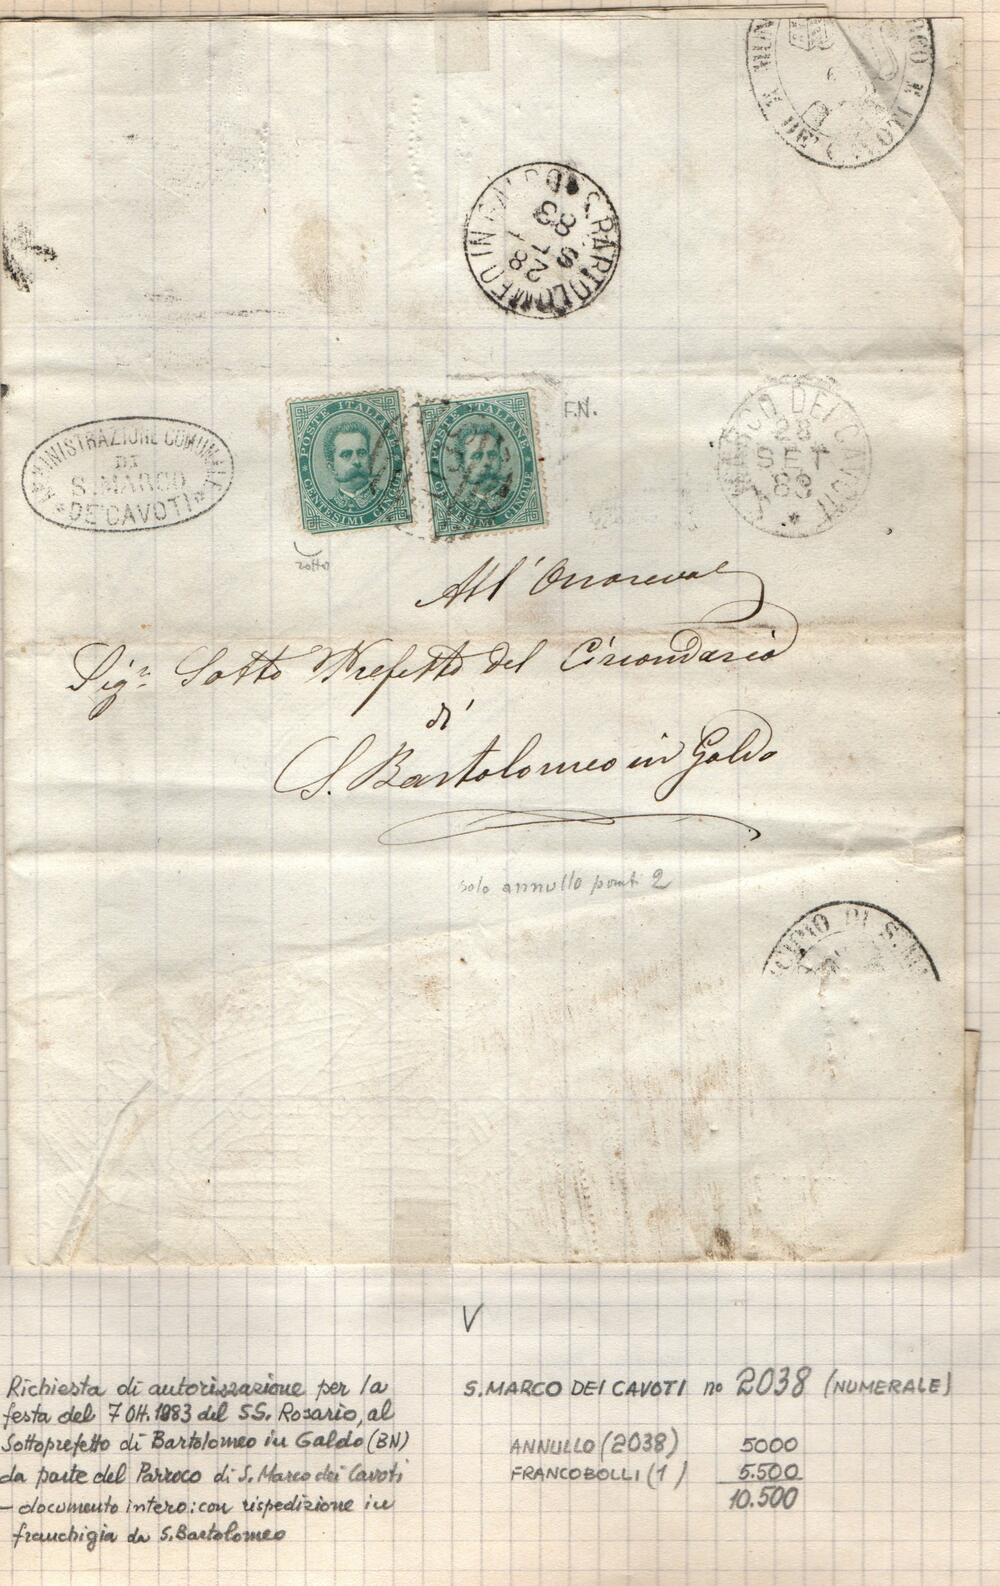 S. BARTOLOMEO IN GALDO
28
S
83
F.N.
AMMINISTRAZIONE COMUNALE
DI
S. MARCO
DE' CAVOTI
POSTE ITALIANE
CENTESIMI CINQUE
POSTE ITALIANE
CENTESIMI CINQUE
S. MARCO DEI CAVOTI
28
SET
83
rotto
All' Onorevol
Sigr. Sotto Prefetto del Circondario
di
S. Bartolomeo in Galdo
solo annullo punti 2
V
Richiesta di autorizzazione per la
festa del 7 Ott. 1883 del SS. Rosario, al
Sottoprefetto di Bartolomeo in Galdo (BN)
da parte del Parroco di S. Marco dei Cavoti
- documento intero: con rispedizione in
franchigia da S. Bartolomeo
S. MARCO DEI CAVOTI no 2038 (NUMERALE)
ANNULLO (2038) 5000
FRANCOBOLLI (1) 5.500
10.500